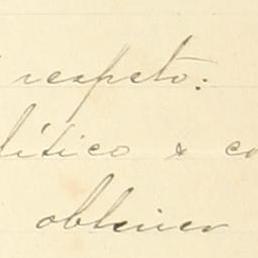 respeto:
lítico & co
obtener